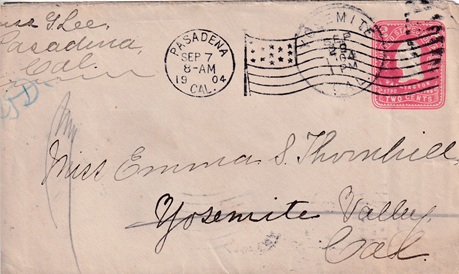 Lee,
Pasadena,
Cal.
PASADENA
SEP 7
8-AM
1904
CAL.
YOSEMITE
SEP
9
1 PM
CAL
TWO CENTS
Miss Emma S. Thornhill,
Yosemite Valley,
Cal.